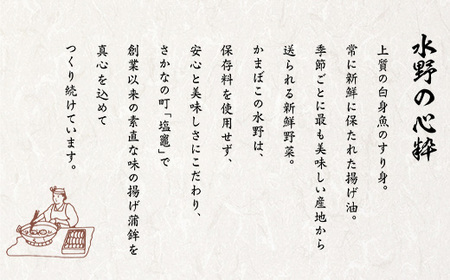 水野の心粋
上質の白身魚のすり身。
常に新鮮に保たれた揚げ油。
季節ごとに最も美味しい産地から
送られる新鮮野菜。
かまぼこの水野は、
保存料を使用せず、
安心と美味しさにこだわり、
さかなの町「塩竈」で
創業以来の素直な味の揚げ蒲鉾を
真心を込めて
つくり続けています。